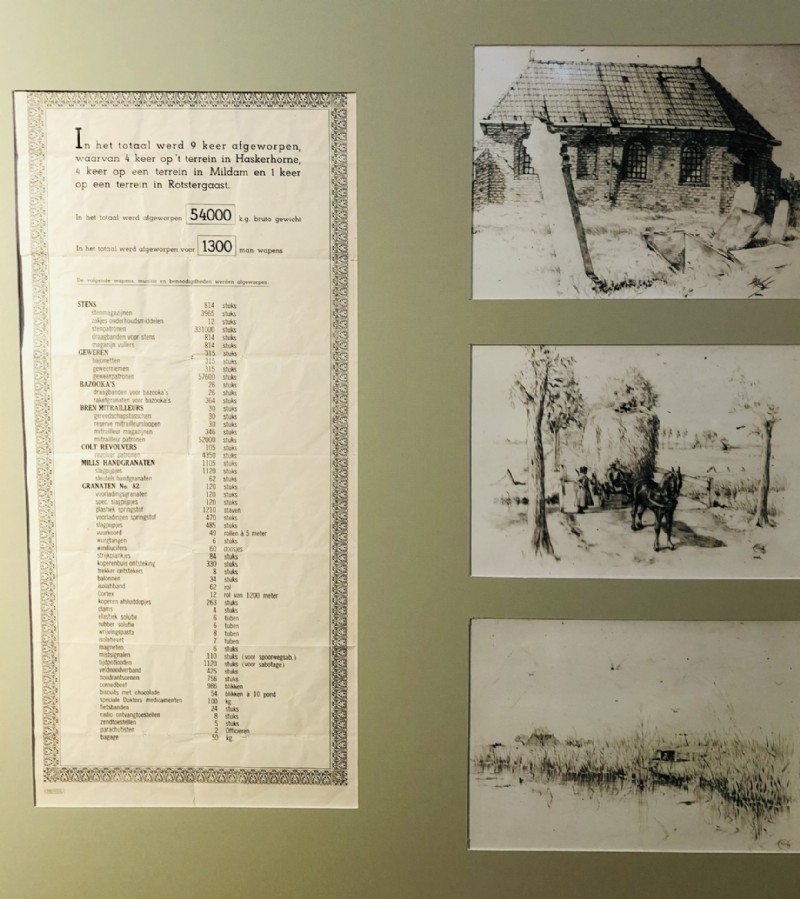 In het totaal werd 9 keer afgeworpen,
waarvan 4 keer op 't terrein in Haskerhorne,
4 keer op een terrein in Mildam en 1 keer
op een terrein in Rotstergaast.
In het totaal werd afgeworpen 54000 k.g. bruto gewicht
In het totaal werd afgeworpen voor 1300 man wapens
De volgende wapens, munitie en benoodigdheden werden afgeworpen.
STENS 814 stuks
stenmagazijnen 3965 stuks
zakjes onderhoudsmiddelen 12 stuks
stenpatronen 331000 stuks
draagbanden voor stens 814 stuks
magazijn vullers 814 stuks
GEWEREN 315 stuks
bajonetten 315 stuks
geweerriemen 315 stuks
geweerpatronen 57600 stuks
BAZOOKA'S 26 stuks
draagbanden voor bazooka's 26 stuks
raketgranaten voor bazooka's 364 stuks
BREN MITRAILLEURS 30 stuks
gereedschapstasschen 30 stuks
reserve mitrailleurloopen 30 stuks
mitrailleur magazijnen 346 stuks
mitrailleur patronen 52000 stuks
COLT REVOLVERS 105 stuks
revolver patronen 4350 stuks
MILLS HANDGRANATEN 1105 stuks
slagpijpjes 1120 stuks
sleutels handgranaten 62 stuks
GRANATEN No. 82 120 stuks
voorladingsgranaten 120 stuks
spec. slagpijpjes 120 stuks
plastiek springstof 1210 staven
voorladingen springstof 470 stuks
slagpijpjes 485 stuks
vuurkoord 49 rollen à 5 meter
wurgtangen 6 stuks
windlucifers 60 doosjes
strijkplankjes 84 stuks
koperenbuis ontsteking 330 stuks
trekker ontstekers 8 stuks
ballonnen 34 stuks
isolatiband 62 rol
Cortex 12 rol van 1200 meter
koperen afsluitdopjes 263 stuks
4 stuks
plastiek solutie 6 tuben
rubber solutie 6 tuben
wrijvingspasta 8 tuben
isolatievet 7 tuben
magneten 6 stuks
mistsignalen 110 stuks (voor spoorwegsab.)
tijdpotlooden 1120 stuks (voor sabotage)
veldnoodverband 425 stuks
noodrantsoenen 756 stuks
cornedbeef 986 blikken
biscuits met chocolade 54 blikken à 10 pond
speciale Dokters medicamenten 100 kg.
fietsbanden 24 stuks
radio ontvangtoestellen 8 stuks
zendtoestellen 5 stuks
parachutisten 2 Officieren
bagage 50 kg.